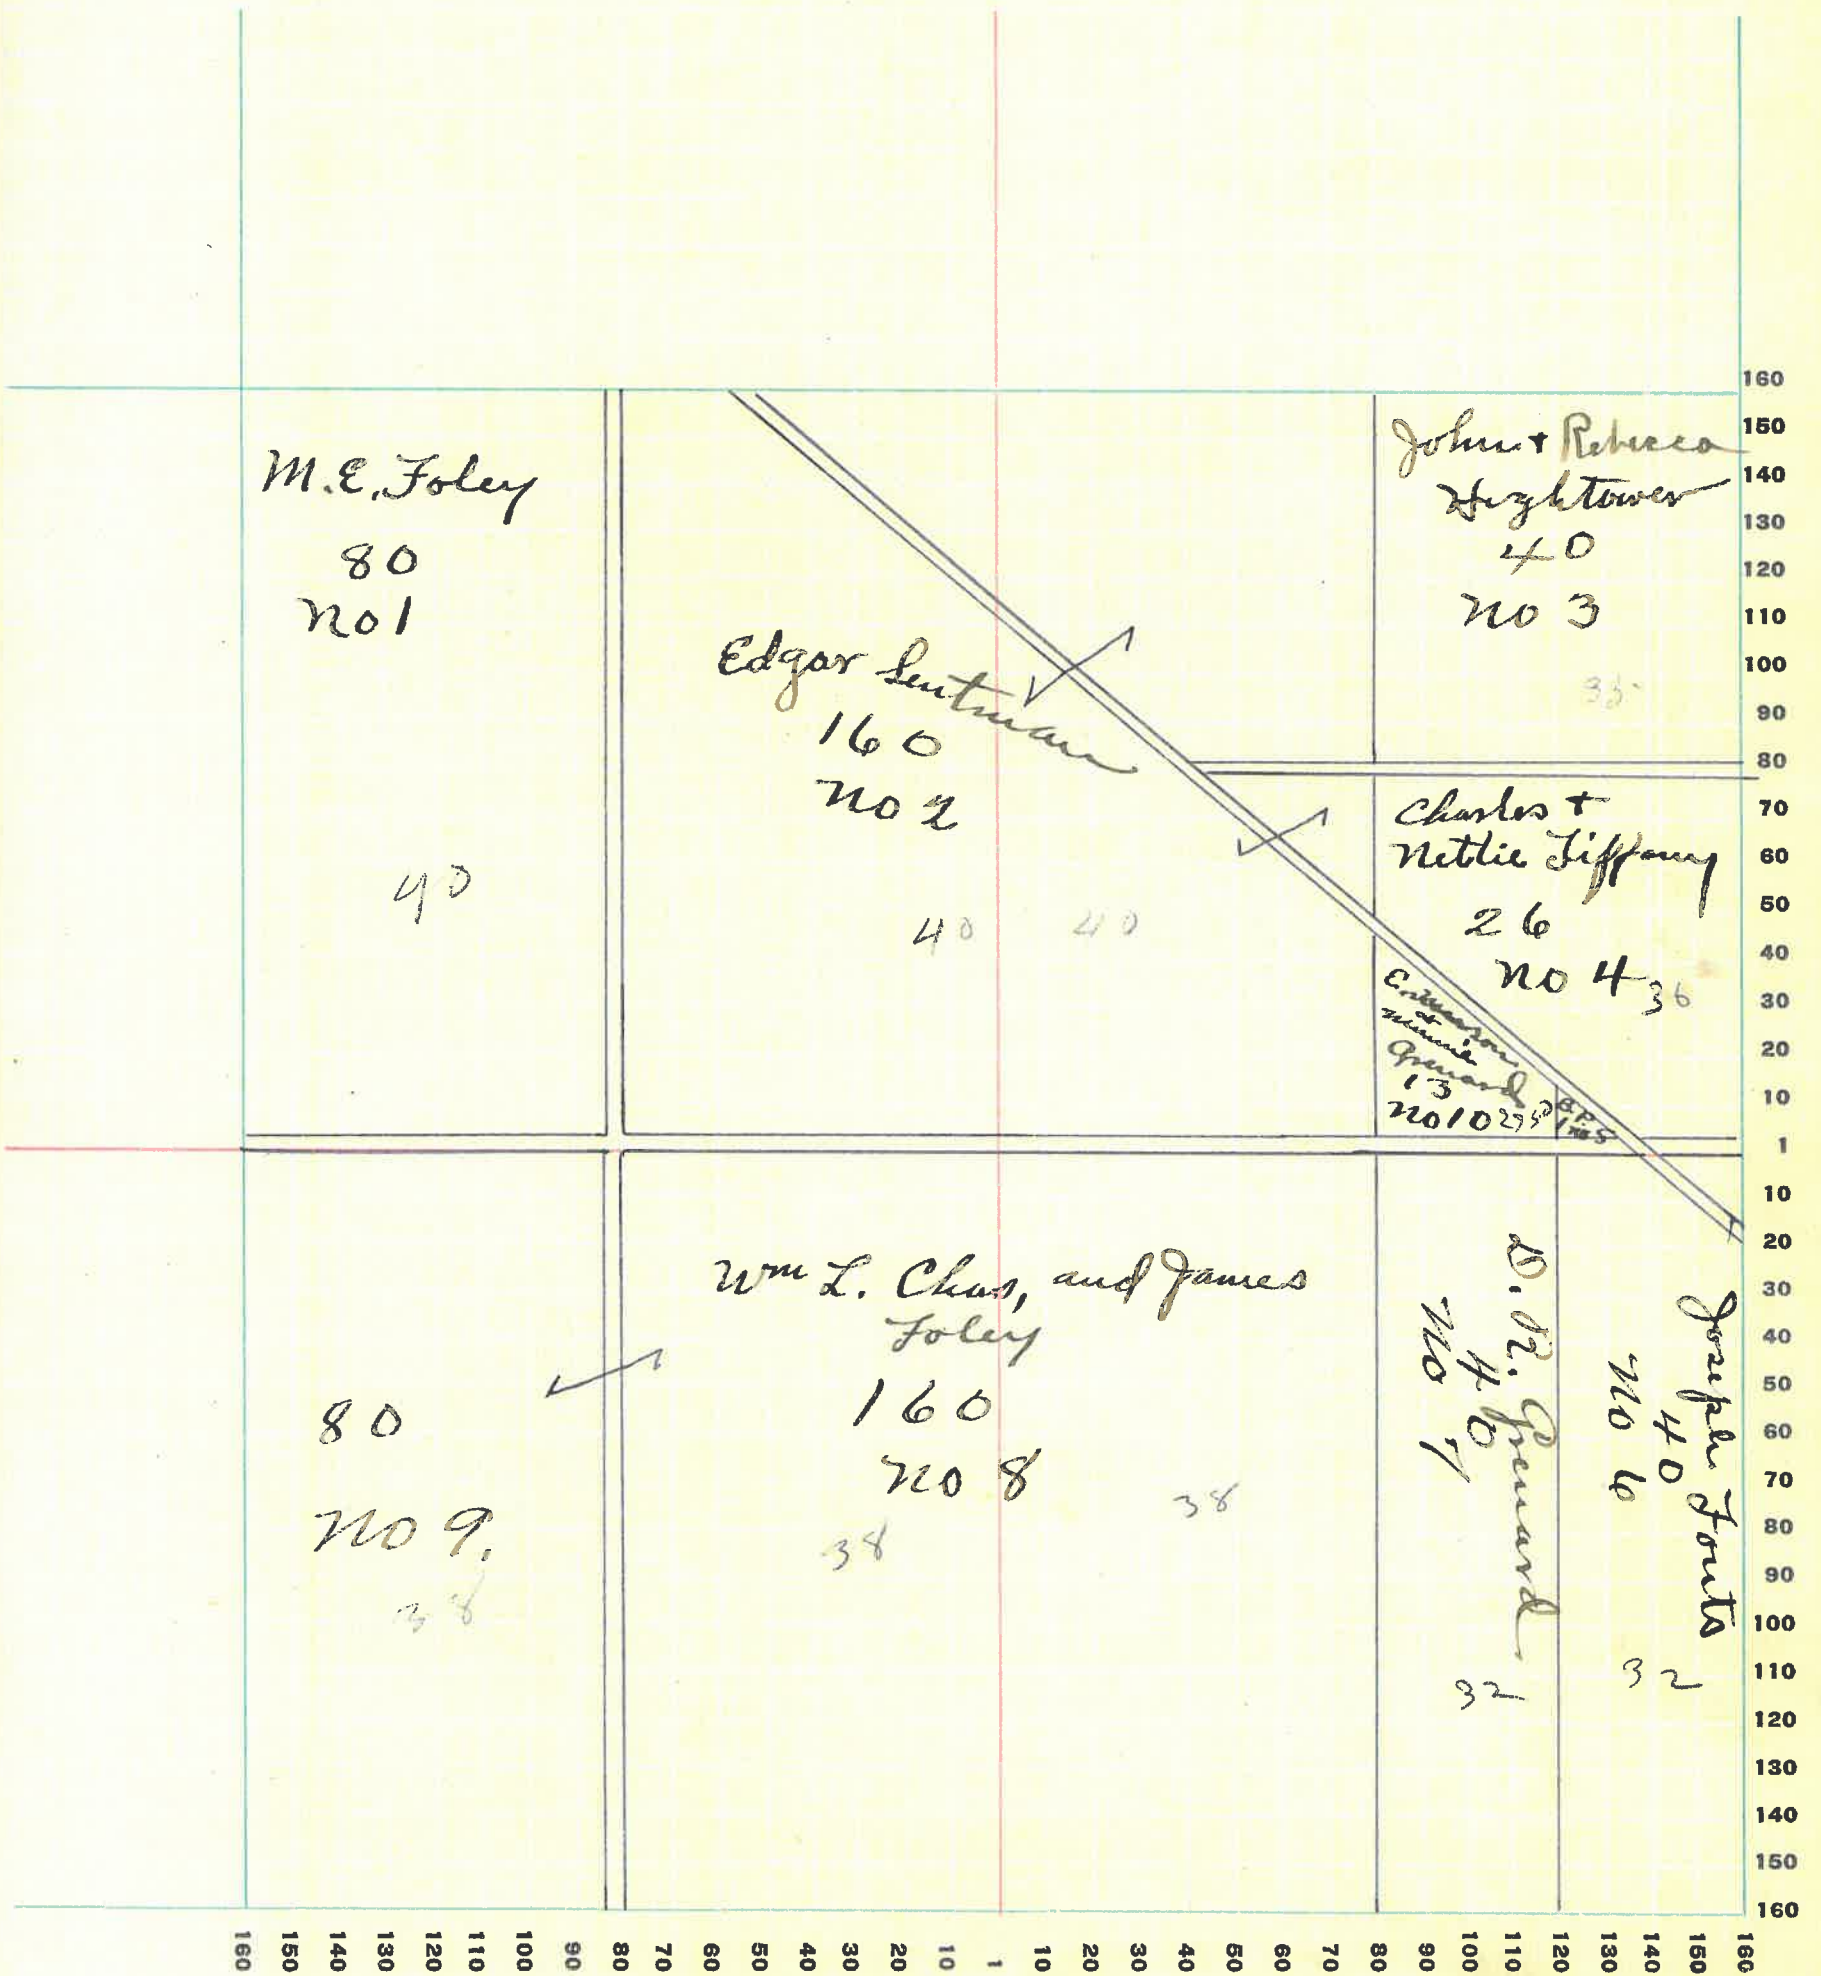 M.E. Foley
80
No 1
40
Edgar
160
No 2
40 40
John + Rebecca
Hightower
40
No 3
35
Charles +
Nettie Tiffany
26
No 4 36
&
Minnie
Grenard
13
No 10
1 No 5
Wm L. Chas, and James
Foley
160
No 8
38
38
80
No 9.
38
D. R. Grenard
40
No 7
32
Joseph Fouts
40
No 6
32
160
150
140
130
120
110
100
90
80
70
60
50
40
30
20
10
1
10
20
30
40
50
60
70
80
90
100
110
120
130
140
150
160
160 150 140 130 120 110 100 90 80 70 60 50 40 30 20 10 1 10 20 30 40 50 60 70 80 90 100 110 120 130 140 150 160